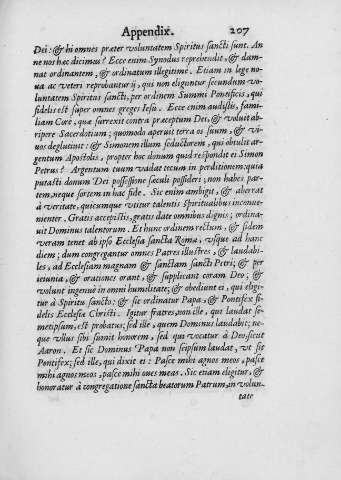 Appendix. 207
Dei: & hi omnes præter voluntatem Spiritus sancti sunt. An
ne nos hæc dicimus? Ecce enim Synodus reprehendit, & dam-
nat ordinantem, & ordinatum illegitimè. Etiam in lege no-
ua ac veteri reprobantur ij, qui non eliguntur secundum vo-
luntatem Spiritus sancti, per ordinem Summi Pontificis, qui
fidelis est super omnes greges Iesu. Ecce enim audistis, fami-
liam Core, quæ surrexit contra præceptum Dei, & voluit ab-
ripere Sacerdotium; quomodo aperuit terra os suum, & vi-
uos deglutiuit: & Simonem illum seductorem, qui obtulit ar-
gentum Apostolis, propter hoc donum quid respondit ei Simon
Petrus? Argentum tuum vadat tecum in perditionem: quia
putasti donum Dei possessione sæculi possideri; non habes par-
tem, neque sortem in hac fide. Sic enim ambigit, & aberrat
à veritate, quicumque vtitur talentis spiritualibus inconue-
nienter. Gratis accepistis, gratis date omnibus dignis; ordina-
uit Dominus talentorum. Et hunc ordinem rectum, & fidem
veram tenet ab ipso Ecclesia sancta Roma, vsque ad hanc
diem; dum congregantur omnes Patres illustres, & laudabi-
les, ad Ecclesiam magnam & sanctam sancti Petri; & per
ieiunia, & orationes orant, & supplicant coram Deo; &
volunt ingenuè in omni humilitate; & obediunt ei, qui eligi-
tur à Spiritu sancto: & sic ordinatur Papa, & Pontifex fi-
delis Ecclesiæ Christi. Igitur fratres, non ille, qui laudat se-
metipsum, est probatus; sed ille, quem Dominus laudabit; ne-
que vllus sibi sumit honorem, sed qui vocatur à Deo, sicut
Aaron. Et sic Dominus Papa non seipsum laudat, vt sit
Pontifex; sed ille, qui dixit ei: Pasce mihi agnos meos, pasce
mihi agnos meos, pasce mihi oues meas. Sic etiam eligitur, &
honoratur à congregatione sancta beatorum Patrum, in volun-
tate